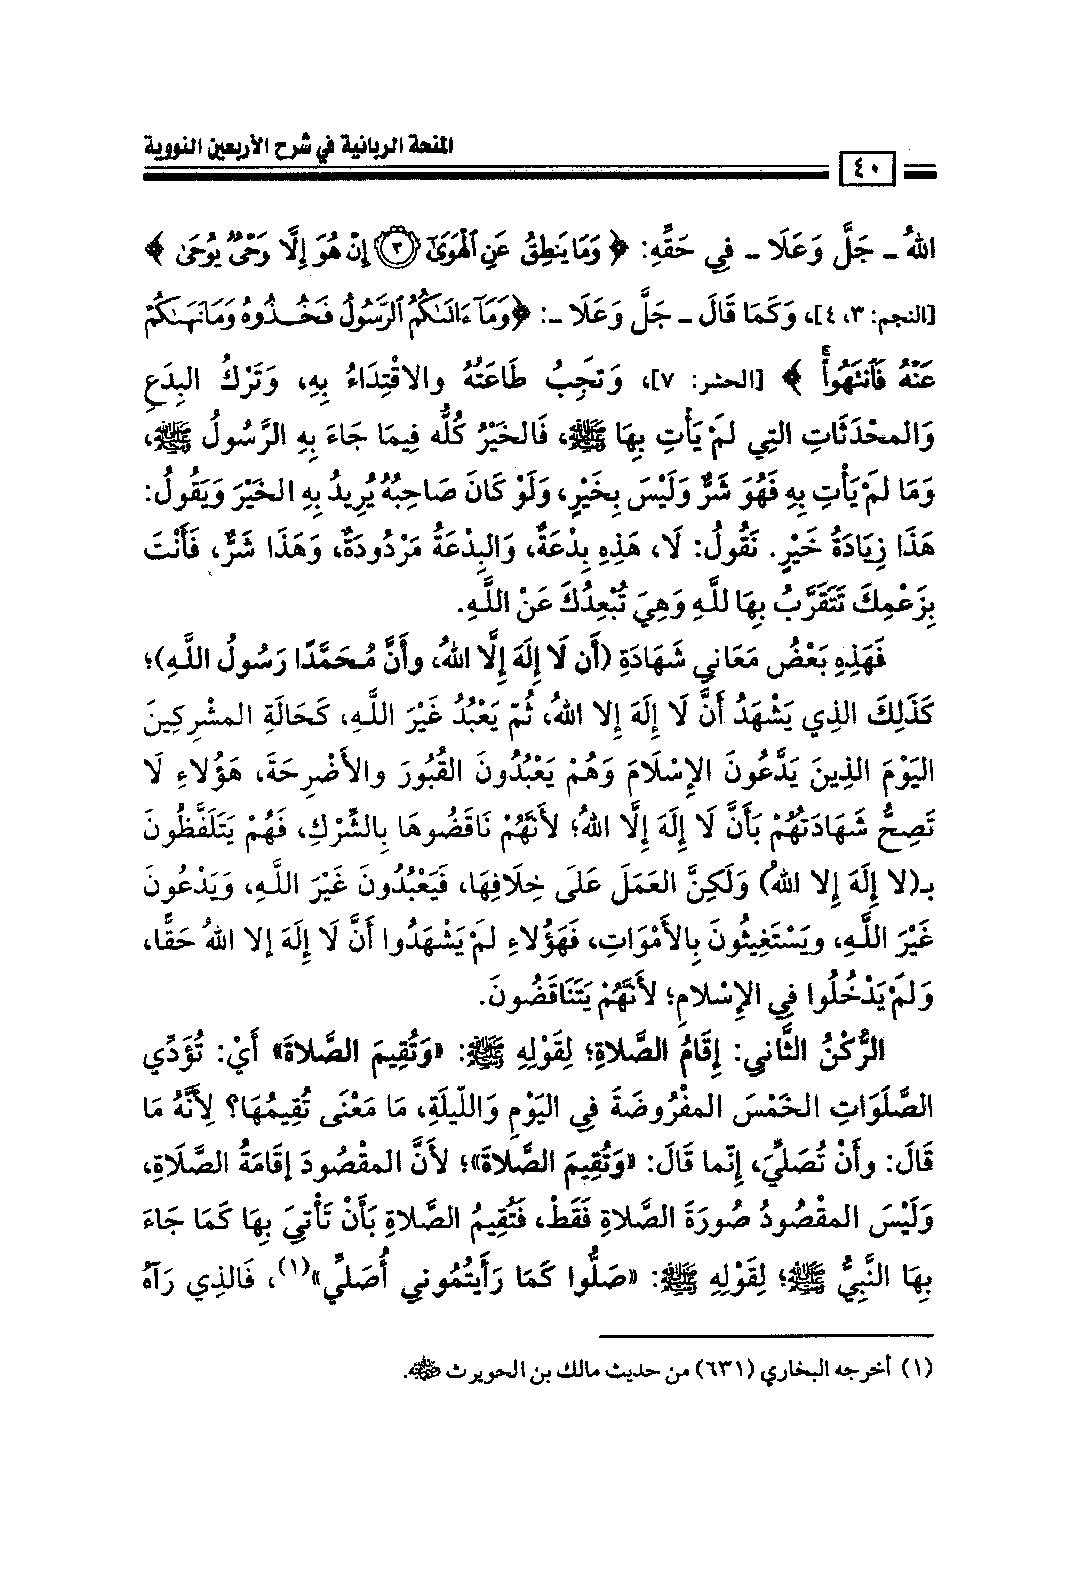 المنحة الربانية في شرح الأربعين النووية
٤٠
اللهُ ـ جَلَّ وَعَلَا ـ فِي حَقِّهِ: ﴿ وَمَا يَنطِقُ عَنِ ٱلْهَوَىٰٓ ٣ إِنْ هُوَ إِلَّا وَحْىٌ يُوحَىٰ ﴾
[النجم: ٣، ٤]، وَكَمَا قَالَ ـ جَلَّ وَعَلَا ـ: ﴿ وَمَآ ءَاتَىٰكُمُ ٱلرَّسُولُ فَخُـذُوهُ وَمَا نَهَىٰكُمْ
عَنْهُ فَٱنتَهُوا۟ۚ ﴾ [الحشر: ٧]، وَتَجِبُ طَاعَتُهُ والاقْتِدَاءُ بِهِ، وَتَرْكُ البِدَعِ
وَالمحْدَثَاتِ التِي لَمْ يَأْتِ بِهَا ﷺ، فَالخَيْرُ كُلُّه فِيمَا جَاءَ بِهِ الرَّسُولُ ﷺ،
وَمَا لَمْ يَأْتِ بِهِ فَهُوَ شَرٌّ وَلَيْسَ بِخَيْرٍ، وَلَوْ كَانَ صَاحِبُهُ يُرِيدُ بِهِ الخَيْرَ وَيَقُولُ:
هَذَا زِيَادَةُ خَيْرٍ. نَقُولُ: لَا، هَذِهِ بِدْعَةٌ، وَالبِدْعَةُ مَرْدُودَةٌ، وَهَذَا شَرٌّ، فَأَنْتَ
بِزَعْمِكَ تَتَقَرَّبُ بِهَا للَّهِ وَهِيَ تُبْعِدُكَ عَنْ اللَّهِ.
فَهَذِهِ بَعْضُ مَعَانِي شَهَادَةِ (أَن لَا إِلَهَ إِلَّا اللهُ، وأَنَّ مُـحَمَّدًا رَسُولُ اللَّهِ)؛
كَذَلِكَ الذِي يَشْهَدُ أَنَّ لَا إِلَهَ إِلا اللهُ، ثُمّ يَعْبُدُ غَيْرَ اللَّهِ، كَحَالَةِ المشْرِكِينَ
اليَوْمَ الذِينَ يَدَّعُونَ الإِسْلَامَ وَهُمْ يَعْبُدُونَ القُبُورَ والأَضْرِحَةَ، هَؤُلاءِ لَا
تَصِحُّ شَهَادَتُهُمْ بَأَنَّ لَا إِلَهَ إِلَّا اللهُ؛ لأَنَّهُمْ نَاقَضُوهَا بِالشِّرْكِ، فَهُمْ يَتَلَفَّظُونَ
بـ(لا إِلَهَ إِلا اللهُ) وَلَكِنَّ العَمَلَ عَلَى خِلَافِهَا، فَيَعْبُدُونَ غَيْرَ اللَّهِ، وَيَدْعُونَ
غَيْرَ اللَّهِ، ويَسْتَغِيثُونَ بِالأَمْوَاتِ، فَهَؤُلاءِ لَمْ يَشْهَدُوا أَنَّ لَا إِلَهَ إلا اللهُ حَقًّا،
وَلَمْ يَدْخُلُوا فِي الإِسْلامِ؛ لأَنَّهُمْ يَتَنَاقَضُونَ.
الرُّكْنُ الثَّانِي: إِقَامُ الصَّلاةِ؛ لِقَوْلِهِ ﷺ: «وَتُقِيمَ الصَّلاةَ» أَيْ: تُؤَدِّي
الصَّلَوَاتِ الخَمْسَ المفْرُوضَةَ فِي اليَوْمِ وَاللَّيلَةِ، مَا مَعْنَى تُقِيمُهَا؟ لِأَنَّهُ مَا
قَالَ: وأَنْ تُصَلِّيَ، إِنّما قَالَ: «وَتُقِيمَ الصَّلاةَ»؛ لأَنَّ المقْصُودَ إقَامَةُ الصَّلَاةِ،
وَلَيْسَ المقْصُودُ صُورَةَ الصَّلاةِ فَقَطْ، فَتُقِيمُ الصَّلاةِ بَأَنْ تَأْتِيَ بِهَا كَمَا جَاءَ
بِهَا النَّبِيُّ ﷺ؛ لِقَوْلِهِ ﷺ: «صَلُّوا كَمَا رَأَيتُمُونِي أُصَلِّي»(١)، فَالذِي رَآهُ
(١) أخرجه البخاري (٦٣١) من حديث مالك بن الحويرث رضي الله عنه.